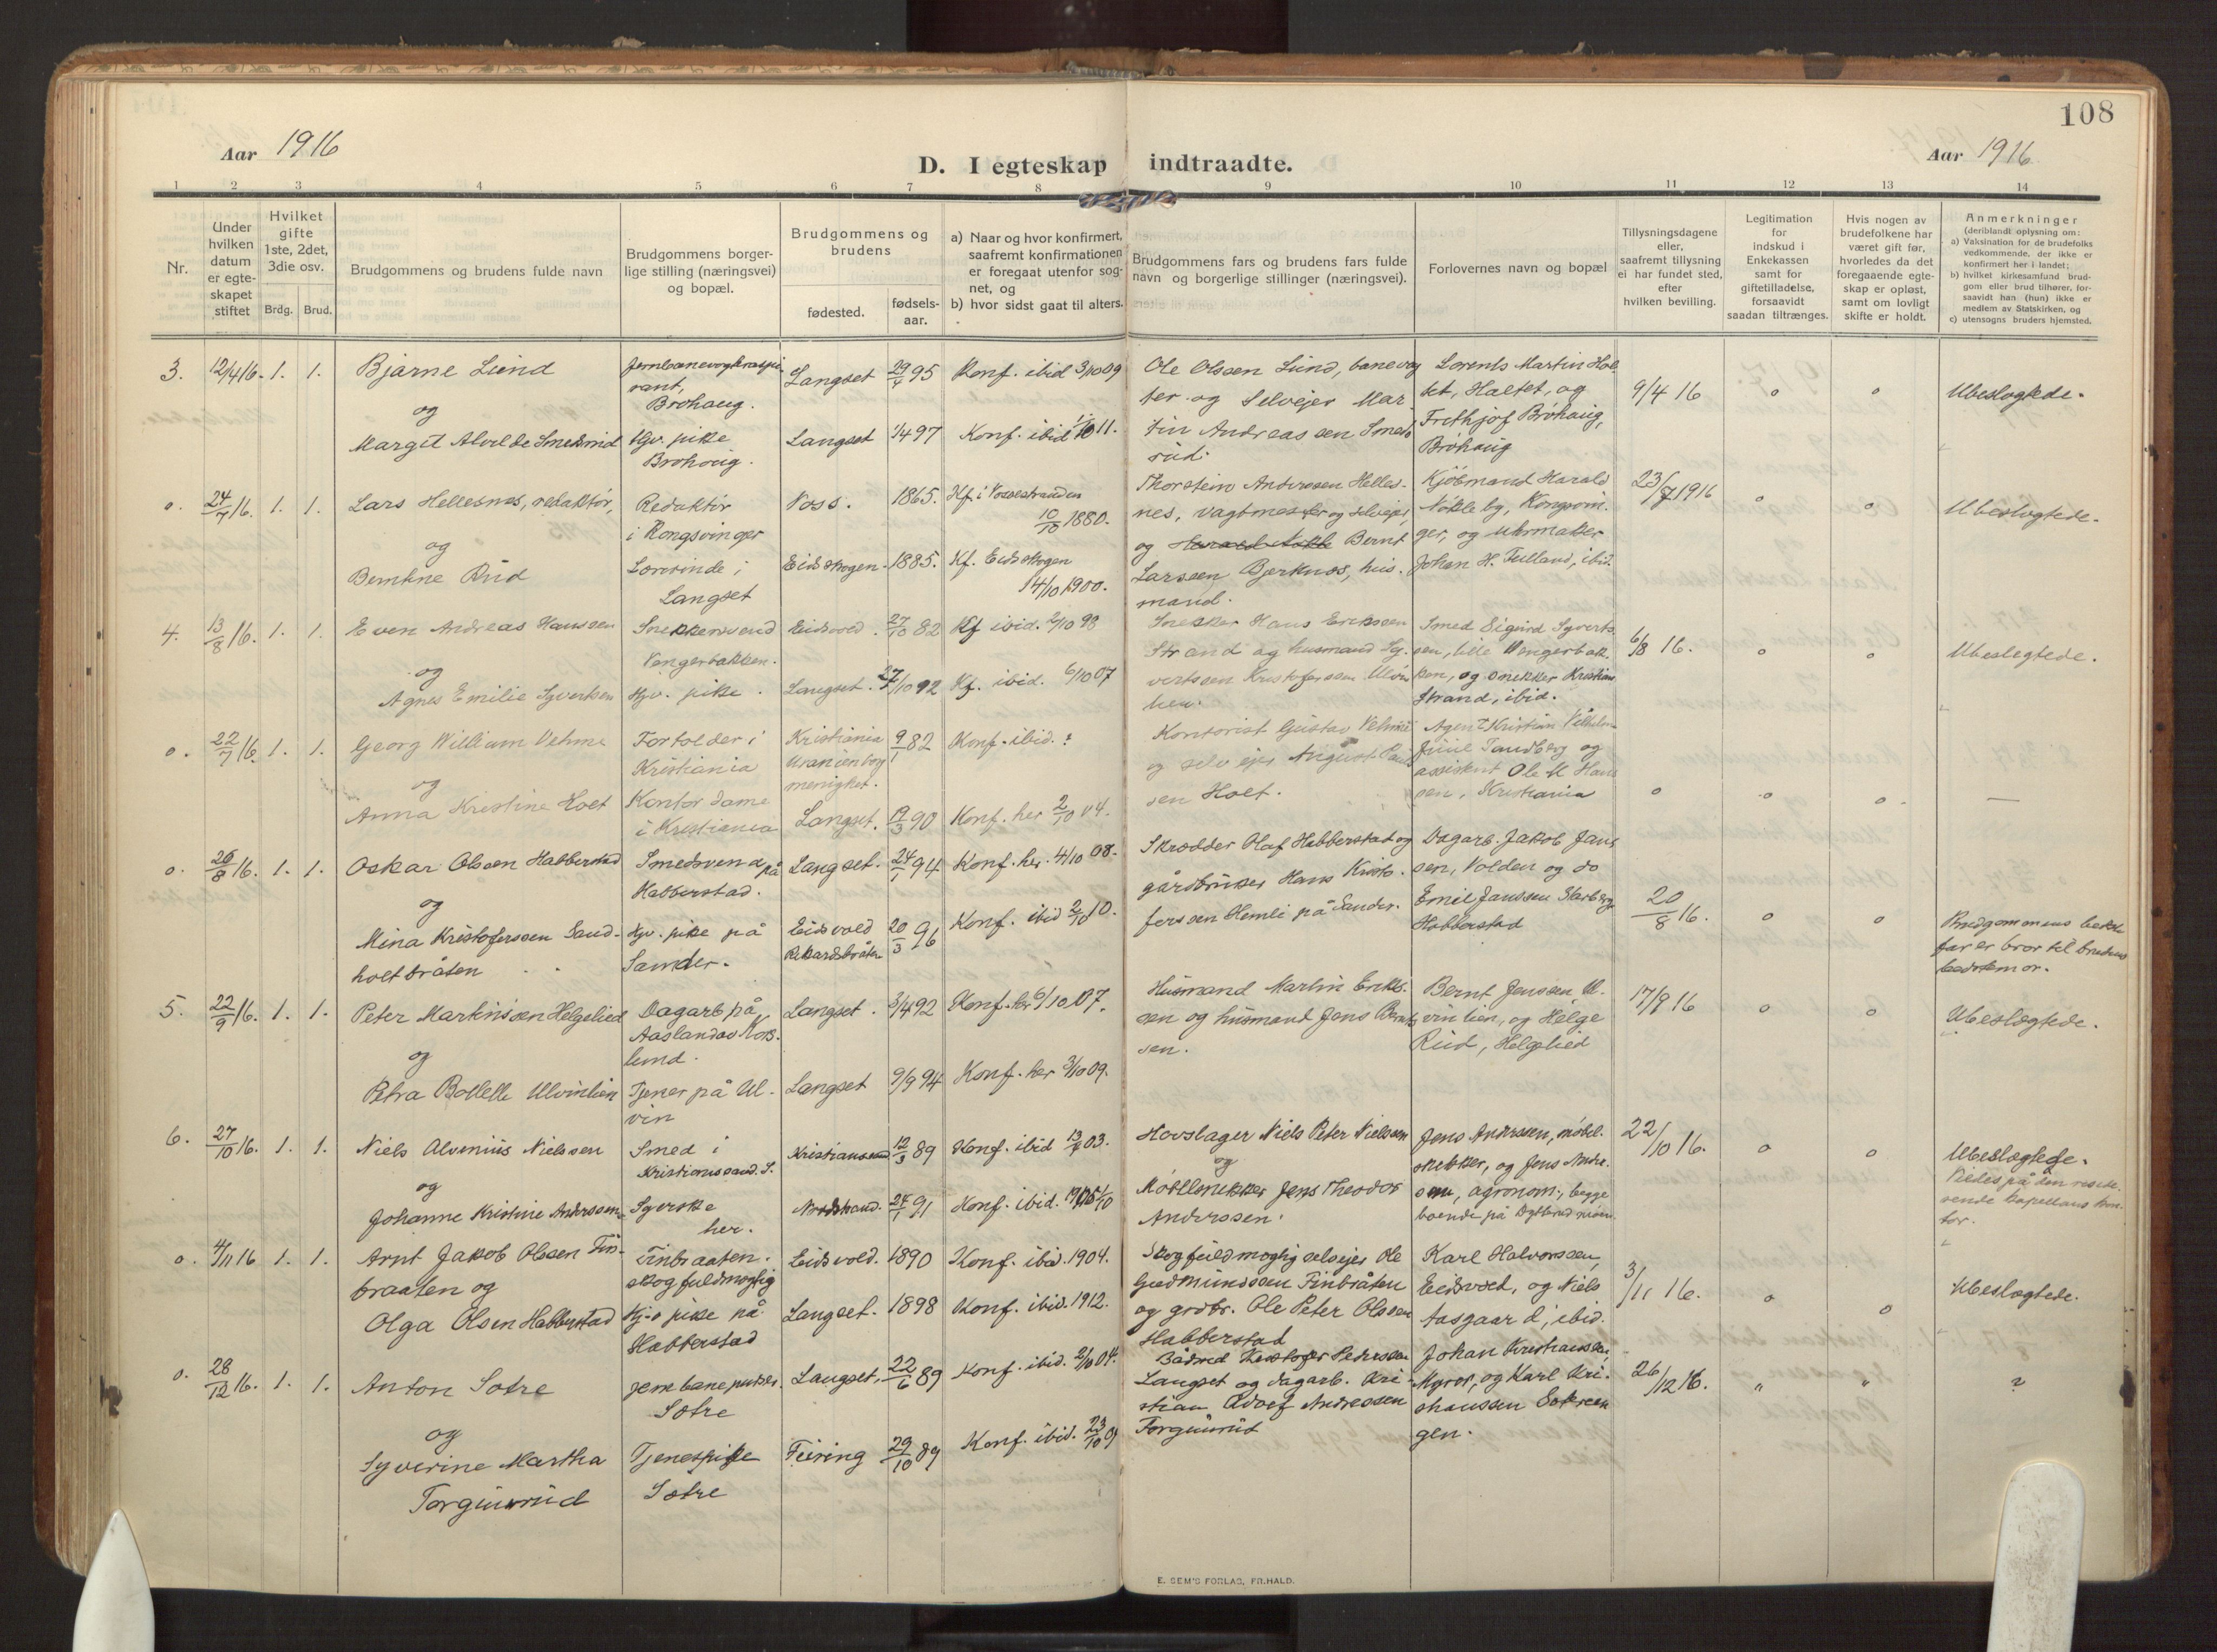 108
Aar 1916
D. I egteskap indtraadte.
Aar 1916
1 2 3 4 5 6 7 8 9 10 11 12 13 14
Nr.
Under
hvilken
datum
er egte-
skapet
stiftet
Hvilket
gifte
1ste, 2det,
3die osv.
Brdg. Brud.
Brudgommens og brudens fulde navn
Brudgommens borger-
lige stilling (næringsvei)
og bopæl.
Brudgommens og
brudens
fødested.
fødsels-
aar.
a) Naar og hvor konfirmert,
saafremt konfirmationen
er foregaat utenfor sog-
net, og
b) hvor sidst gaat til alters.
Brudgommens fars og brudens fars fulde
navn og borgerlige stillinger (næringsvei).
Forlovernes navn og bopæl
Tillysningsdagene
eller,
saafremt tillysning
ei har fundet sted,
efter
hvilken bevilling.
Legitimation
for
indskud i
Enkekassen
samt for
giftetilladelse,
forsaavidt
saadan tiltrænges.
Hvis nogen av
brudefolkene har
været gift før,
hvorledes da det
foregaaende egte-
skap er opløst,
samt om lovligt
skifte er holdt.
Anmerkninger
(deriblandt oplysning om:
a) Vaksination for de brudefolks
vedkommende, der ikke er
konfirmert her i landet;
b) hvilket kirkesamfund brud-
gom eller brud tilhører, for-
saavidt han (hun) ikke er
medlem av Statskirken, og
c) utensogns bruders hjemsted.
3. 12/4 16. 1. 1.
Bjarne Lund
og
Margit Alvilde Smedsrud
Brohaug.
Hjv. pike
Brohoug.
Langset 29/4 95 Konf. ibid 3/10 09
Langset 1/4 97 Konf. ibid 11.
Ole Olssen Lund, banevog
ter og Selvejer Mar
tin Andreassen Smeds
rud.
Lorents Martin Hol
tet, Haltet, og
Frithjof Brohaug,
Brohaug
9/4 16 o o Ubeslegtede.
o. 24/7 16. 1. 1.
Lars Hellesnes, redaktør,
og
Berntine Rud
Redaktør
i Kongsvinger
Lærerinde i
Langset
Voss. 1865. Kf. i Vossestranden
10/10 1880.
Eidskogen. 1885. Kf. Eidskogen
14/10 1900.
Thorstein Anderssen Helles-
nes, vagtmester og selvejer,
og Bernt
Larssen Bjerknes, hus-
mand.
Kjøbmand Harald
Nøkleby, Kongsvin-
ger, og Uhrmaker
Johan H. Fulland, ibid.
23/7 1916 o o Ubeslegtede.
4. 13/8 16. 1. 1.
Even Andreas Hanssen
og
Agnes Emilie Syvertsen
Snekkersvend
Vengerbakken.
Hjv. pike.
Eidsvold. 27/10 82 Kf ibid. 2/10 98
Langset. 27/10 92 Kf. ibid. 6/10 07
Snekker Hans Erikssen
Strand og husmand Sy-
vertssen Kristoferssen Ulvin
hen.
Smed Sigurd Syverts
sen, lille Vengerbak
ken, og snekker Kristian
Strand, ibid.
6/8 16. o o Ubeslegtede.
o. 22/7 16. 1. 1.
Georg William Vehme
og
Anna Kristine Holt
Fortolder i
Kristiania
Kontordame
i Kristiania
Kristiania
Uranienborg
menighet.
9/1 82 Konf. ibid. ?
Langset. 19/3 90 Konf. her 2/10 04.
Kontorist Gustav Vehme
og selvejer August Pauls
sen Holt.
Agent Kristian Vilhelm
Juul Sandberg og
assistent Ole M Hans
sen, Kristiania
o o o —
o. 26/8 16. 1. 1.
Oskar Olssen Habberstad
og
Mina Kristoferssen Sand-
holtbråten
Smedsvend på
Habberstad.
Hjv. pike på
Sander.
Langset. 24/1 94 Konf. her. 4/10 08.
Eidsvold
Rikardsbråten
20/3 96 Konf. ibid 2/10 10.
Skrædder Olaf Habberstad og
gårdbruker Hans Kristo-
ferssen Hemli på Sander.
Dagarb. Jakob Jans
sen, Volden og do
Emil Janssen Starberg
Habberstad
20/8 16. o o
Brudgommens beste
far er bror til brudens
bedstemor.
5. 22/9 16. 1. 1.
Peter Martinssen Helgelied
og
Petra Bollette Ulvinlien
Dagarb på
Aasland
lund.
Tjener på Ul-
vin
Langset. 3/4 92 Konf. her 6/10 07.
Langset 9/9 94 Konf. her 3/10 09.
Husmand Martin Eriks-
sen og husmand Jens Bernts
sen.
Bernt Jenssen, Ul-
vinlien, og Helge
Rud, Helgelied
17/9 16 o o Ubeslegtede.
6. 27/10 16. 1. 1.
Niels Alvenius Nielssen
og
Johanne Kristine Anderssen
Smed i
Kristianssand S.
Syerske
her.
Kristianssand 12/3 89 Konf. ibid 03.
Nordstrand. 24/1 91 Konf. ibid.
Hovslager Niels Peter Nielssen
og
Møbelsnekker Jens Theodor
Anderssen.
Jens Anderssen, møbel-
snekker, og Jens Andre.
sen, agronom, begge
boende på
22/10 16. o o
Ubeslegtede.
Viedes på den reside-
rende kapellans kon-
tor.
o. 4/11 16 1. 1.
Arnt Jakob Olssen Fin-
braaten og
Olga Olsen Habberstad
Finbraaten.
skogfuldmægtig
Hj-v pike på
Habberstad
Eidsvold. 1890 Konf. ibid. 1904.
Langset. 1898 Konf. ibid. 1912.
Skogfuldmægtig selvejer Ole
Gudmundssen Finbråten
og grdbr. Ole Peter Olssen
Habberstad
Karl Halvorssen,
Eidsvold, og Niels
Aasgaard, ibid.
3/11 16. o o Ubeslegtede.
o. 28/12 16. 1. 1.
Anton Sætre
og
Syverine Martha
Torgunrud
Jernbanepusser.
Sætre
Tjenespike
Sætre
Langset. 22/6 89 Konf. ibid. 2/10 04.
Feiring 29/10 89 Konf. ibid. 23/10 0
Bådmd Kristofer Pederssen
Langset og dagarb. Kri-
stian Adolf Andressen
Torgunrud
Johan Kristianssen,
Myrer, og Karl Kri-
stianssen
gen.
26/12 16. " " ?
E. SEM'S FORLAG, FR.HALD.